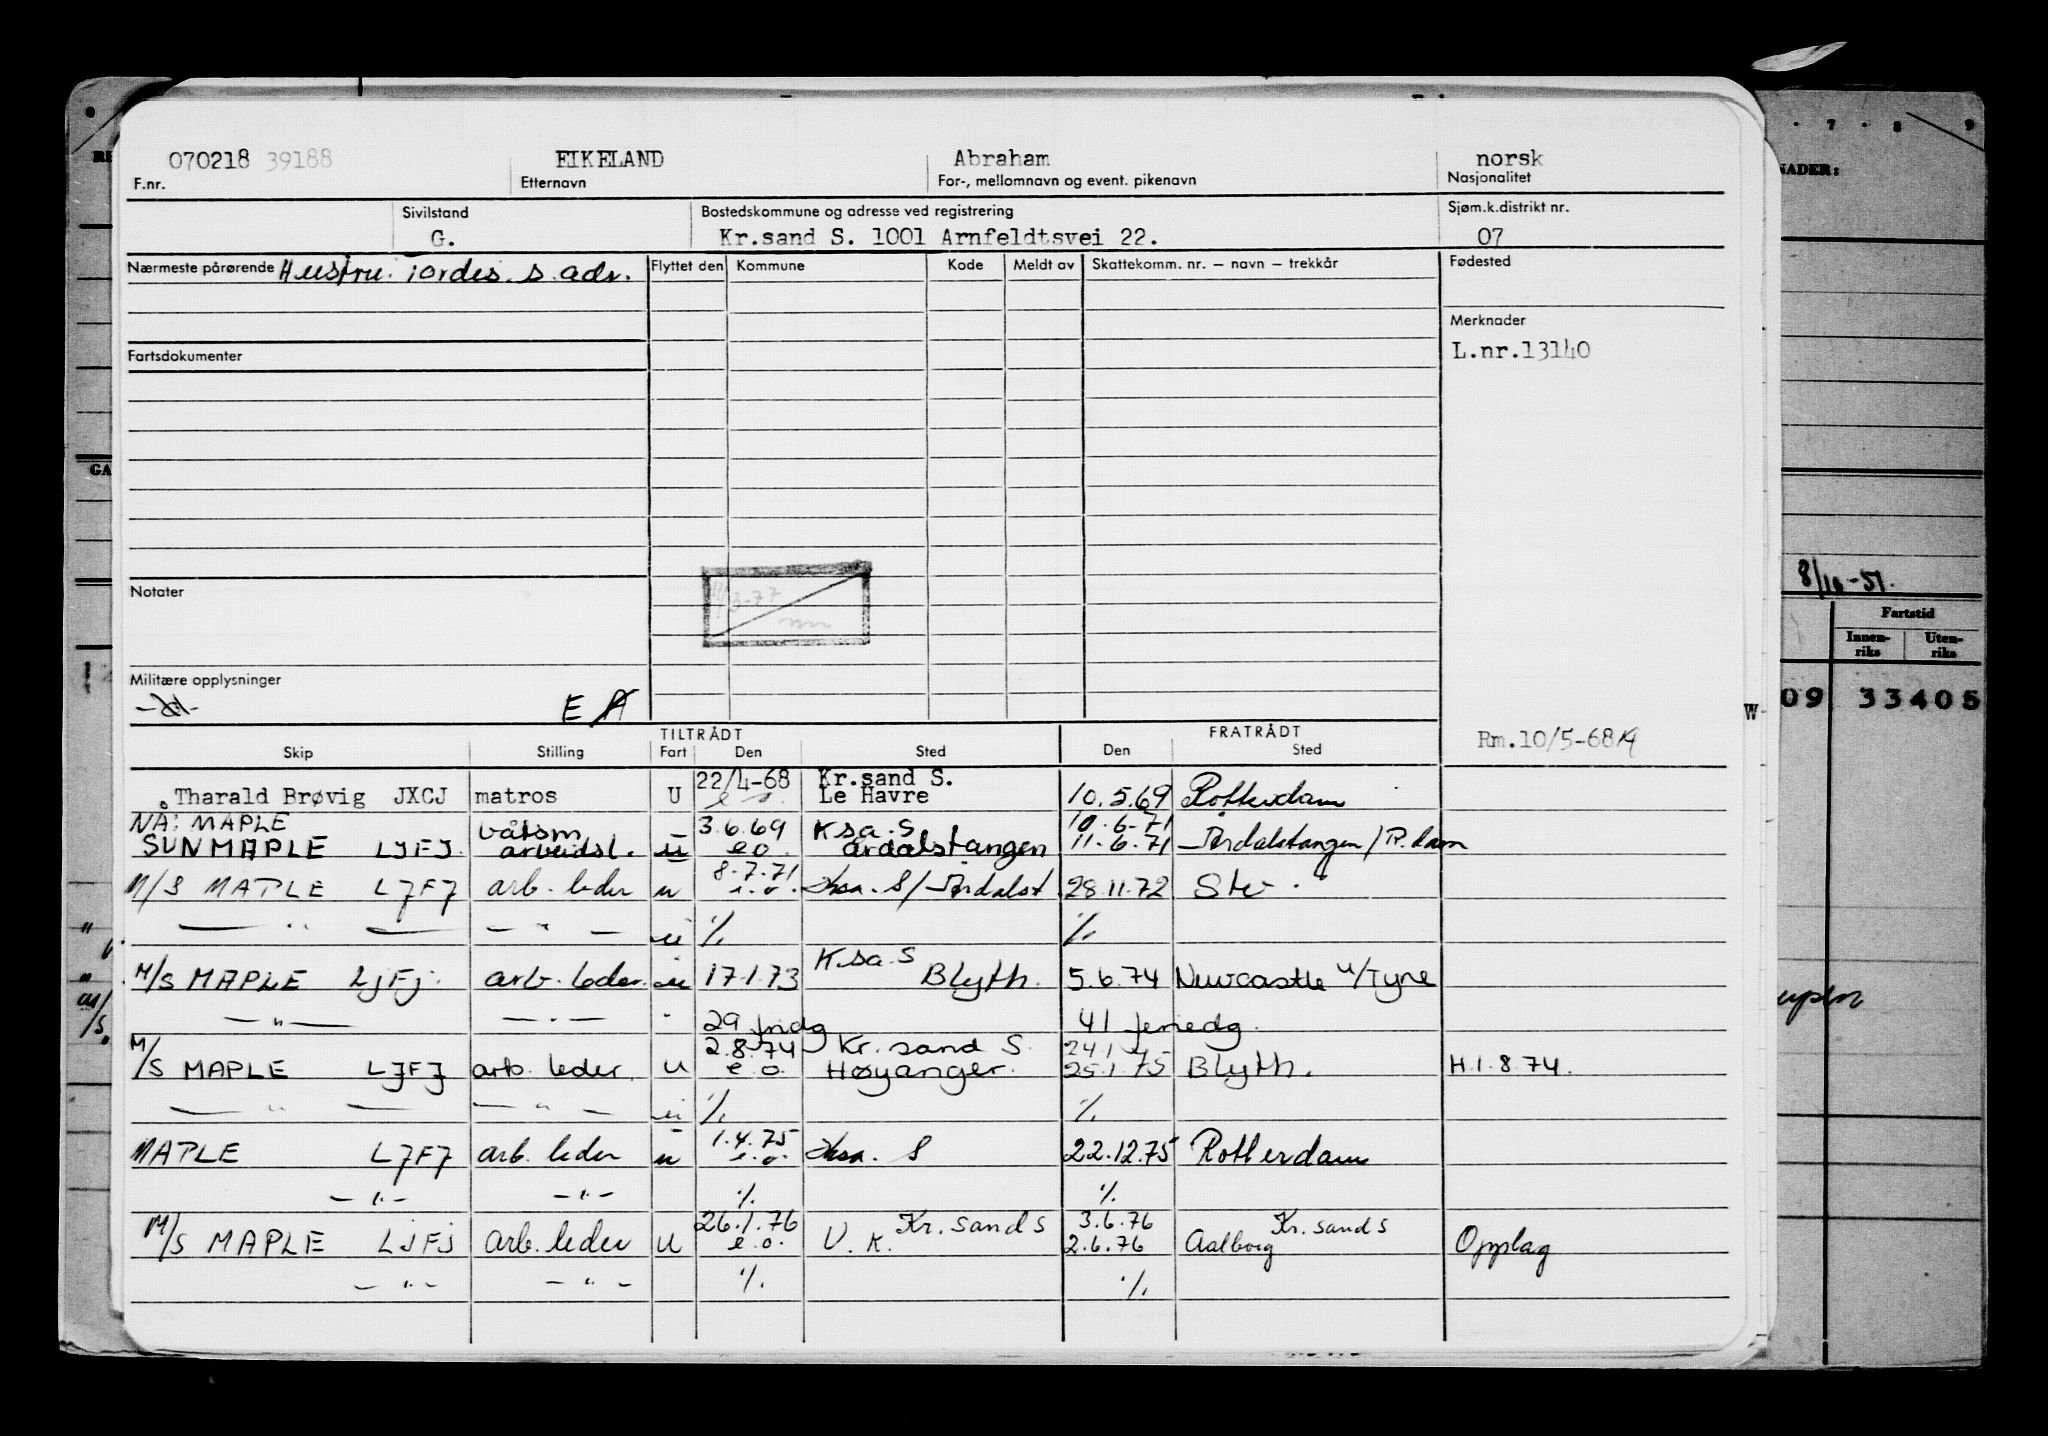 070218 39188 EIKELAND Abraham norsk
F.nr. Etternavn For-, mellomnavn og event. pikenavn Nasjonalitet
Sivilstand Bostedskommune og adresse ved registrering Sjøm.k.distrikt nr.
G. Kr.sand S. 1001 Arnfeldtsvei 22. 07
Nærmeste pårørende Hustru. Tordis. s. adr. Flyttet den Kommune Kode Meldt av Skattekomm. nr. – navn – trekkår Fødested
Merknader
Fartsdokumenter L.nr.13140
Notater
3-77
8/10-51.
Fartstid
Innenriks Utenriks
Militære opplysninger
E A
09 33405
W
TILTRÅDT FRATRÅDT
Skip Stilling Fart Den Sted Den Sted Rm.10/5-68
22/4-68 Kr.sand S.
Tharald Brøvig JXCJ matros U e o. Le Havre 10.5.69 Rotterdam
NÅ: MAPLE båtsm 3.6.69 Ksa. S 10.6-71
SUNMAPLE LJFJ. arbeidsl. u eo. årdalstangen 11.6.71 Årdalstangen/R.dam
8.7.71
M/S MAPLE LJFJ arb. leder u e.o. Ksa. S/Årdalst. 28.11.72 Stv.
— " — — " — u % %
Ksa. S
M/S MAPLE LJFJ. arb. leder. u 17.1.73 Blyth. 5.6.74 Newcastle u/Tyne
— " — — " — " 29 fridg 41 feriedg.
2.8.74 Kr. sand S. 24.1
M/S MAPLE LJFJ arb. leder. u e.o. Høyanger. 25.1.75 Blyth. H.1.8.74.
— " — — " — u % %
1.4.75
MAPLE LJFJ arb. leder u e.o. Ksa. S 22.12.75 Rotterdam
— " — — " — % %
26.1.76 Kr. sand S 3.6.76 Kr. sand S
M/S MAPLE LJFJ arb. leder U e.o. V. K. 2.6.76 Aalborg Opplag
— " — — " — % %